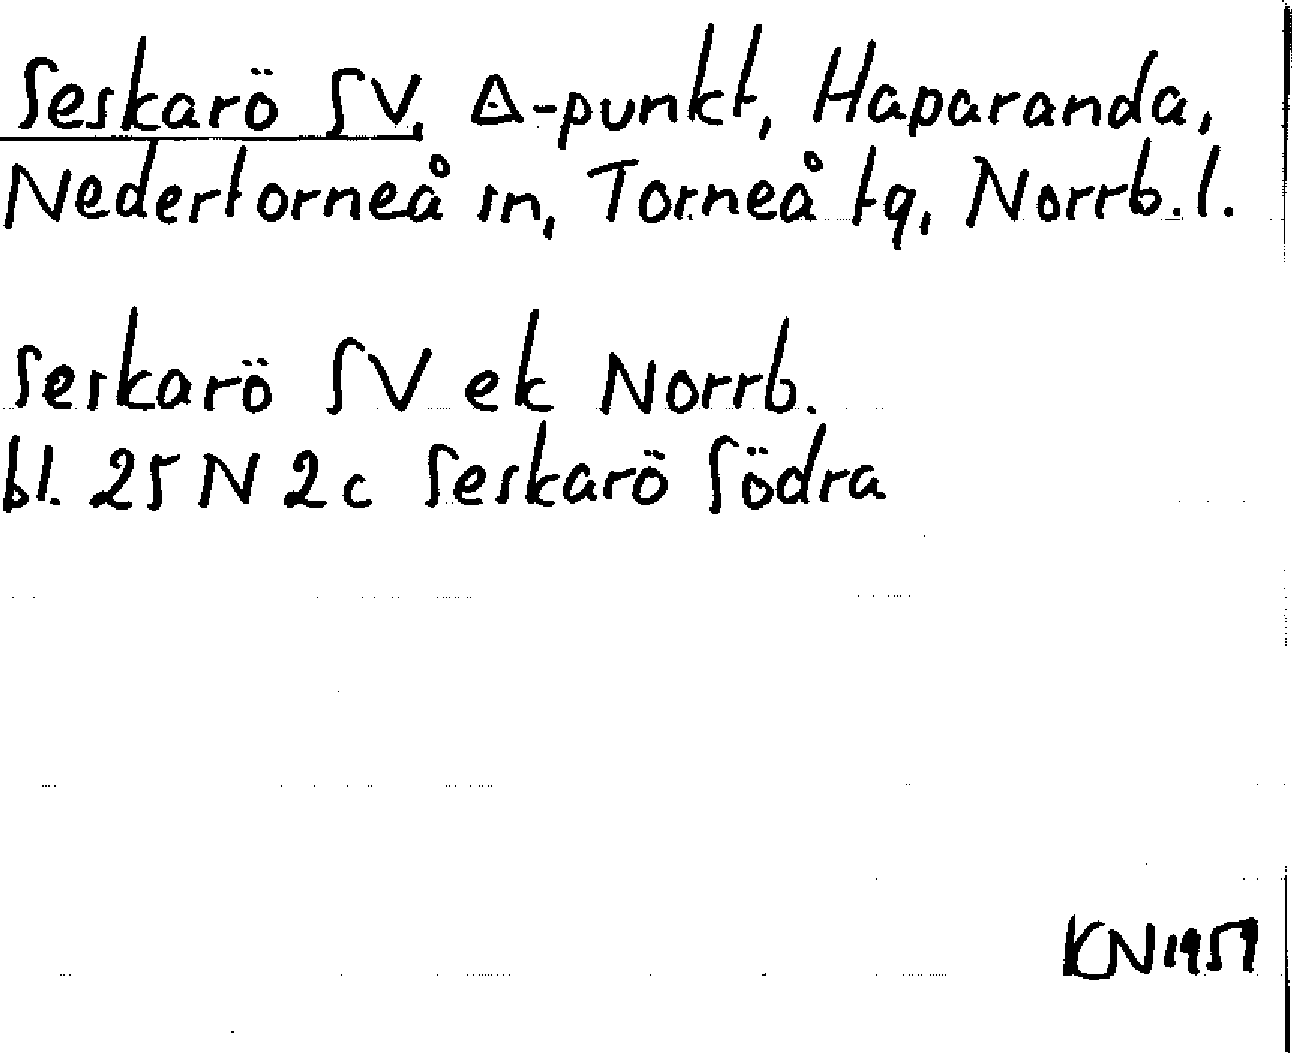 Seskarö SV, Δ-punkt, Haparanda,
Nedertorneå sn, Torneå tg, Norrb. l.
Seskarö SV ek Norrb.
bl. 25 N 2c Seskarö Södra
KN 1957